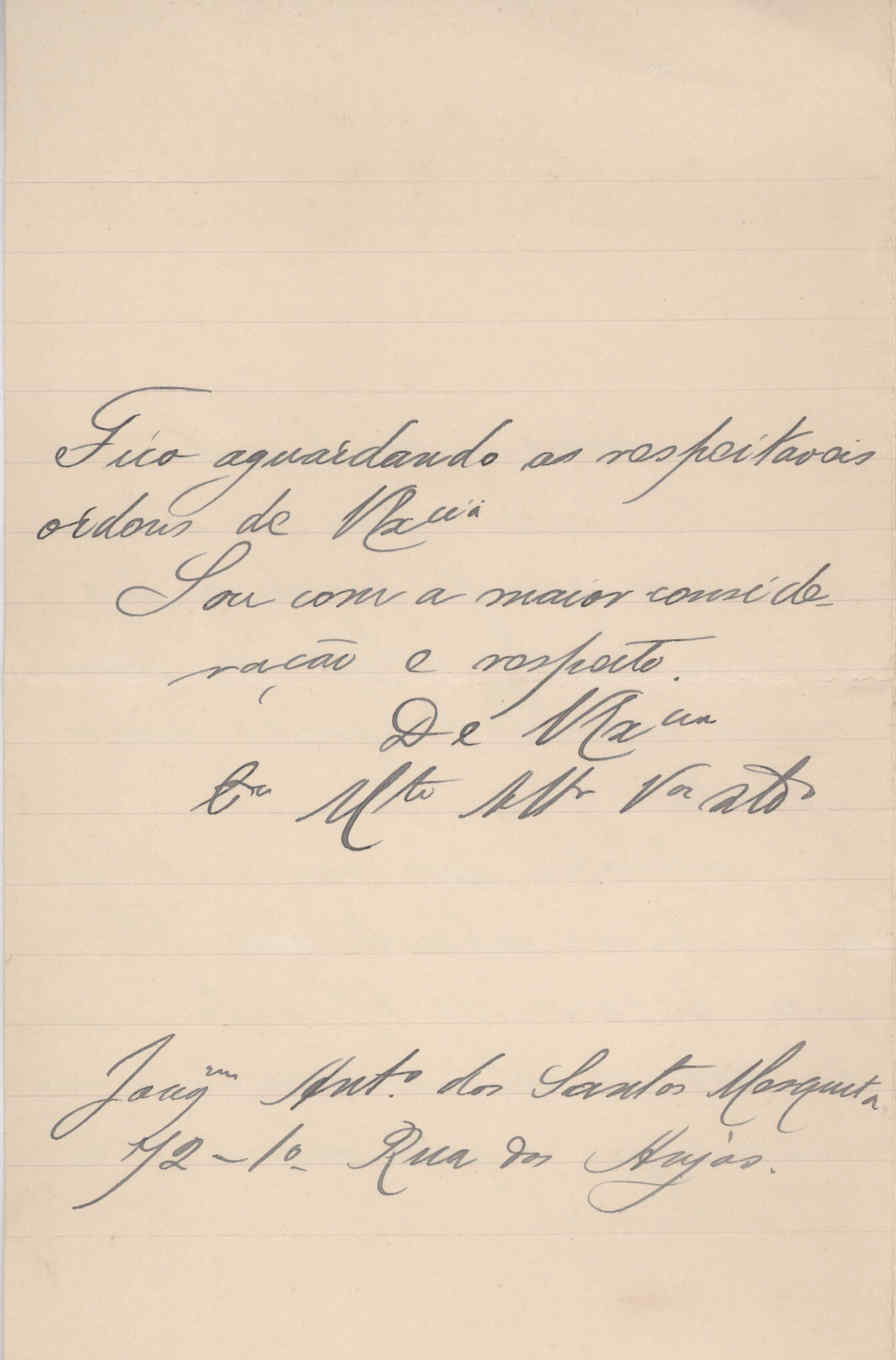 Fico aguardando as respeitaveis
ordens de VExcia
Sou com a maior conside-
ração e respeito.
De VExcia
Cro Mto Attr Vor
Joaqm Anto dos Santos Mesquita
72-1º Rua dos Anjos.